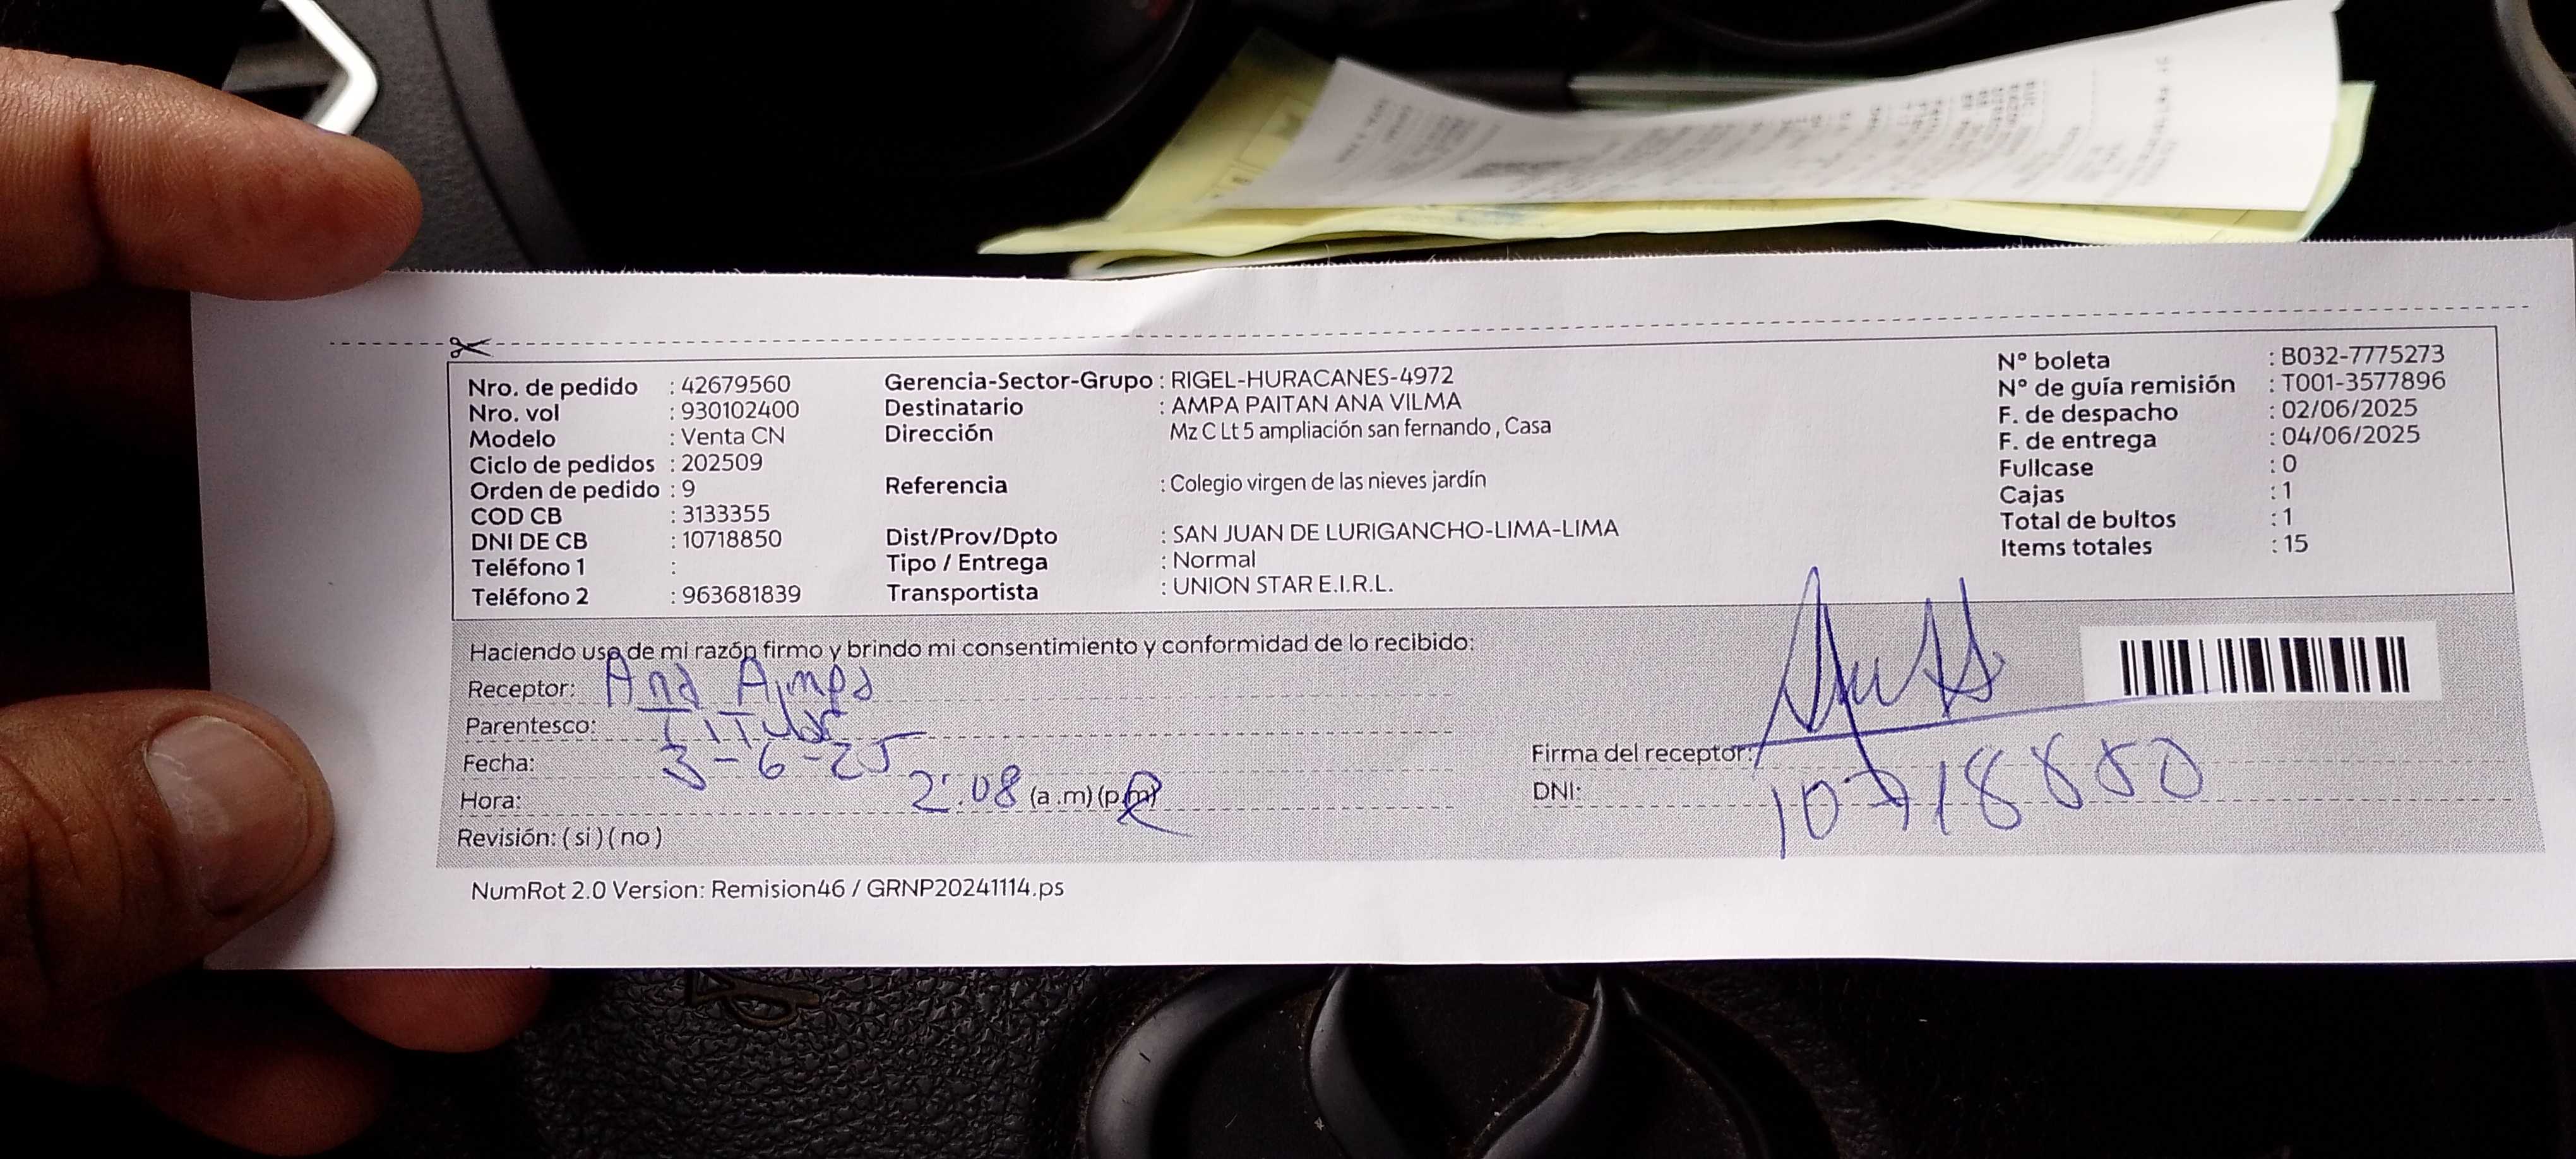 Nro. de pedido : 42679560
Nro. vol : 930102400
Modelo : Venta CN
Ciclo de pedidos : 202509
Orden de pedido : 9
COD CB : 3133355
DNI DE CB : 10718850
Teléfono 1 :
Teléfono 2 : 963681839
Gerencia-Sector-Grupo : RIGEL-HURACANES-4972
Destinatario : AMPA PAITAN ANA VILMA
Dirección Mz C Lt 5 ampliación san fernando , Casa
Referencia : Colegio virgen de las nieves jardín
Dist/Prov/Dpto : SAN JUAN DE LURIGANCHO-LIMA-LIMA
Tipo / Entrega : Normal
Transportista : UNION STAR E.I.R.L.
N° boleta : B032-7775273
N° de guía remisión : T001-3577896
F. de despacho : 02/06/2025
F. de entrega : 04/06/2025
Fullcase : 0
Cajas : 1
Total de bultos : 1
Items totales : 15
Haciendo uso de mi razón firmo y brindo mi consentimiento y conformidad de lo recibido:
Receptor: Ana Ampa
Parentesco: TiTular
Fecha: 3-6-25
Hora: 2:08 (a .m) (p.m)
Revisión: ( si ) ( no )
Firma del receptor:
DNI: 10718850
NumRot 2.0 Version: Remision46 / GRNP20241114.ps